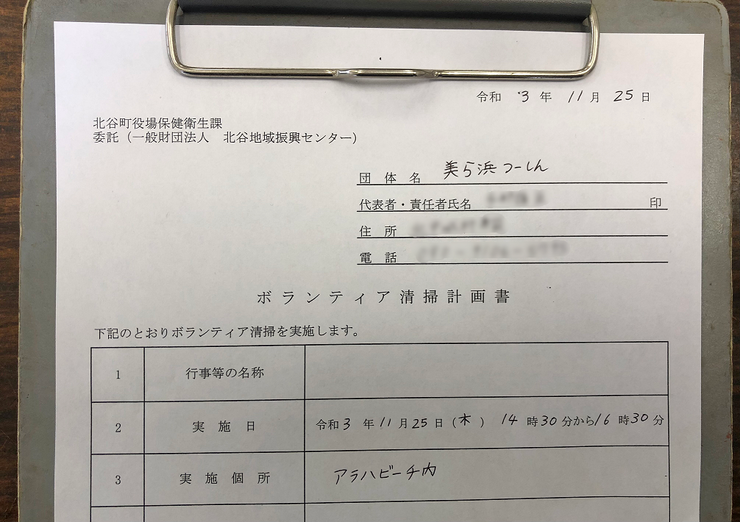 令和 3 年 11 月 25 日
北谷町役場保健衛生課
委託（一般財団法人　北谷地域振興センター）
団 体 名 美ら浜つーしん
代表者・責任者氏名 印
住 所
電 話
ボランティア清掃計画書
下記のとおりボランティア清掃を実施します。
1 行事等の名称
2 実 施 日 令和3 年11月25日（木） 14 時30分から16 時30分
3 実 施 個 所 アラハビーチ内